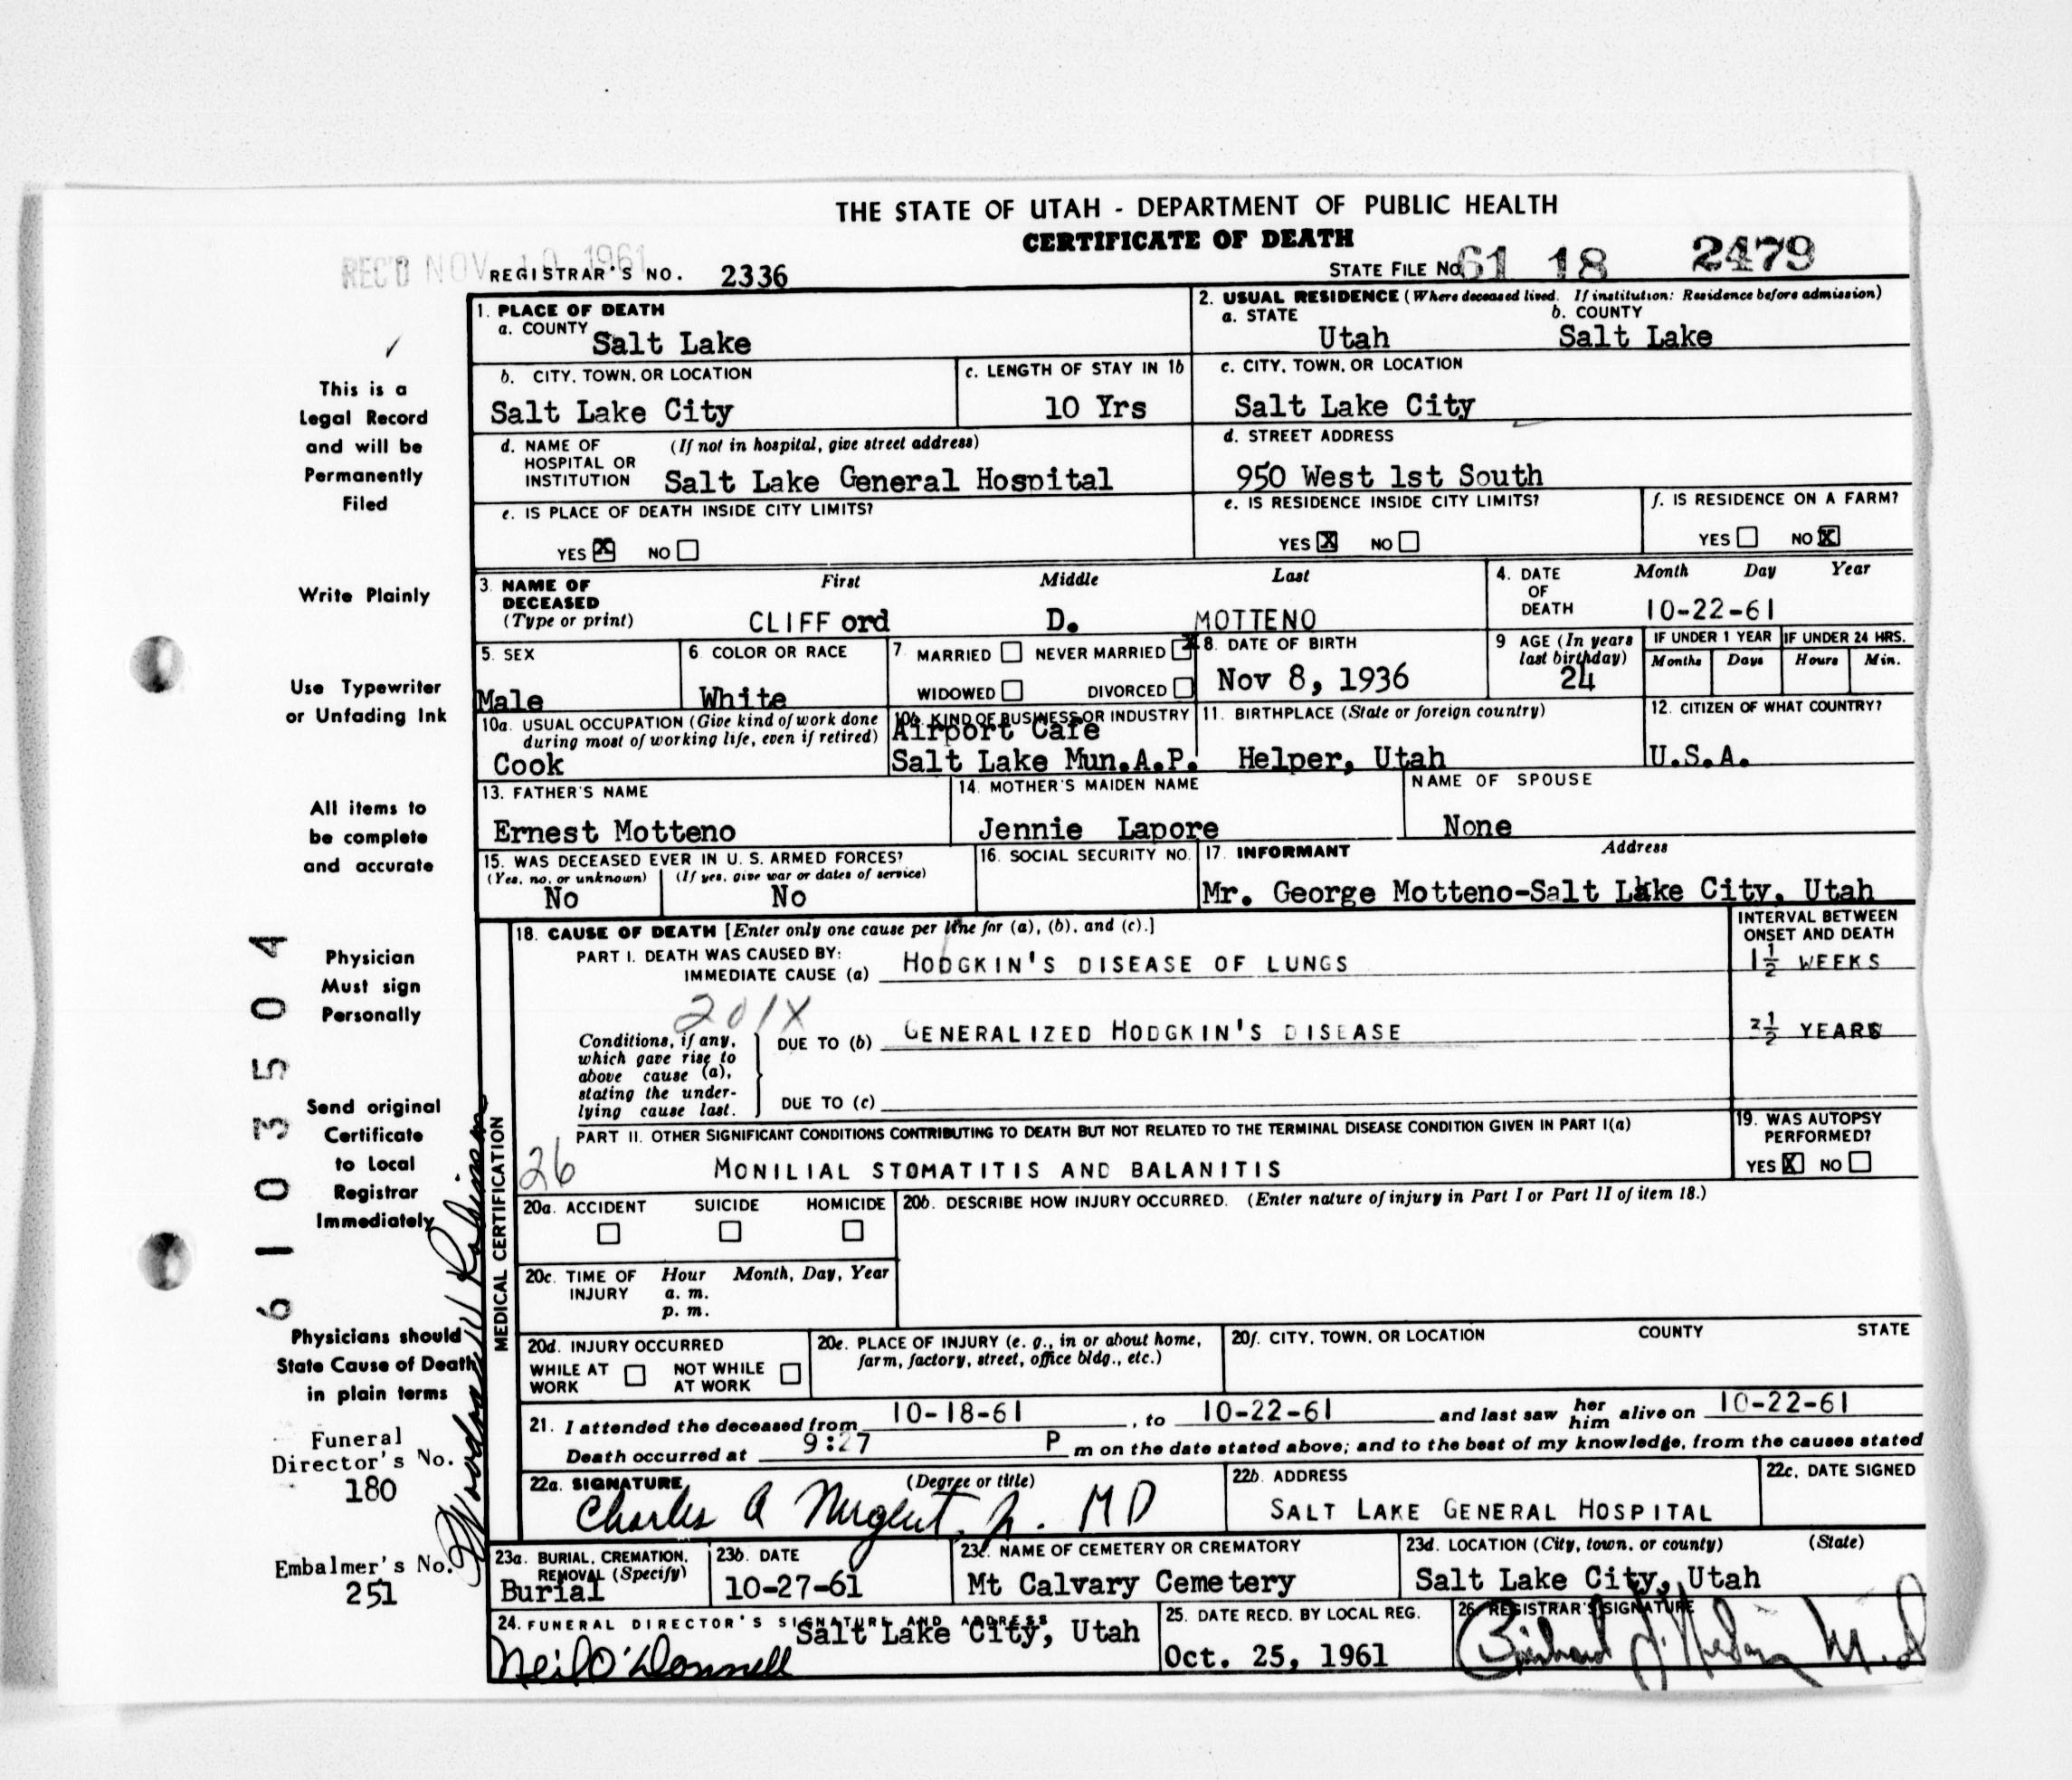 THE STATE OF UTAH - DEPARTMENT OF PUBLIC HEALTH
CERTIFICATE OF DEATH
REC'D NOV 1961
REGISTRAR'S NO. 2336
STATE FILE NO. 61 18 2479
1. PLACE OF DEATH
a. COUNTY Salt Lake
2. USUAL RESIDENCE (Where deceased lived. If institution: Residence before admission)
a. STATE Utah b. COUNTY Salt Lake
b. CITY, TOWN, OR LOCATION Salt Lake City
c. LENGTH OF STAY IN 1b 10 Yrs
c. CITY, TOWN, OR LOCATION Salt Lake City
d. NAME OF HOSPITAL OR INSTITUTION (If not in hospital, give street address) Salt Lake General Hospital
d. STREET ADDRESS 950 West 1st South
e. IS PLACE OF DEATH INSIDE CITY LIMITS? YES X NO
e. IS RESIDENCE INSIDE CITY LIMITS? YES X NO
f. IS RESIDENCE ON A FARM? YES NO X
3. NAME OF DECEASED (Type or print) First Middle Last
CLIFFord D. MOTTENO
4. DATE OF DEATH Month Day Year
10-22-61
5. SEX Male
6. COLOR OR RACE White
7. MARRIED NEVER MARRIED X WIDOWED DIVORCED
8. DATE OF BIRTH Nov 8, 1936
9 AGE (In years last birthday) 24
IF UNDER 1 YEAR Months Days
IF UNDER 24 HRS. Hours Min.
10a. USUAL OCCUPATION (Give kind of work done during most of working life, even if retired) Cook
10b. KIND OF BUSINESS OR INDUSTRY Airport Cafe
Salt Lake Mun.A.P.
11. BIRTHPLACE (State or foreign country) Helper, Utah
12. CITIZEN OF WHAT COUNTRY? U.S.A.
13. FATHER'S NAME Ernest Motteno
14. MOTHER'S MAIDEN NAME Jennie Lapore
NAME OF SPOUSE None
15. WAS DECEASED EVER IN U. S. ARMED FORCES?
(Yes, no, or unknown) No (If yes, give war or dates of service) No
16. SOCIAL SECURITY NO.
17. INFORMANT Address
Mr. George Motteno-Salt Lake City, Utah
MEDICAL CERTIFICATION
18. CAUSE OF DEATH [Enter only one cause per line for (a), (b), and (c).]
INTERVAL BETWEEN ONSET AND DEATH
PART I. DEATH WAS CAUSED BY:
IMMEDIATE CAUSE (a) HODGKIN'S DISEASE OF LUNGS 1½ WEEKS
201X
Conditions, if any, which gave rise to above cause (a), stating the underlying cause last.
DUE TO (b) GENERALIZED HODGKIN'S DISEASE 2½ YEARS
DUE TO (c)
PART II. OTHER SIGNIFICANT CONDITIONS CONTRIBUTING TO DEATH BUT NOT RELATED TO THE TERMINAL DISEASE CONDITION GIVEN IN PART I(a)
26 MONILIAL STOMATITIS AND BALANITIS
19. WAS AUTOPSY PERFORMED? YES X NO
20a. ACCIDENT SUICIDE HOMICIDE
20b. DESCRIBE HOW INJURY OCCURRED. (Enter nature of injury in Part I or Part II of item 18.)
20c. TIME OF INJURY Hour a. m. p. m. Month, Day, Year
20d. INJURY OCCURRED
WHILE AT WORK NOT WHILE AT WORK
20e. PLACE OF INJURY (e. g., in or about home, farm, factory, street, office bldg., etc.)
20f. CITY, TOWN, OR LOCATION COUNTY STATE
21. I attended the deceased from 10-18-61, to 10-22-61 and last saw her him alive on 10-22-61
Death occurred at 9:27 P m on the date stated above; and to the best of my knowledge, from the causes stated
22a. SIGNATURE (Degree or title)
Charles A MD
22b. ADDRESS SALT LAKE GENERAL HOSPITAL
22c. DATE SIGNED
23a. BURIAL, CREMATION, REMOVAL (Specify) Burial
23b. DATE 10-27-61
23c. NAME OF CEMETERY OR CREMATORY Mt Calvary Cemetery
23d. LOCATION (City, town, or county) (State) Salt Lake City, Utah
24. FUNERAL DIRECTOR'S SIGNATURE AND ADDRESS Salt Lake City, Utah
Neil O'Donnell
25. DATE RECD. BY LOCAL REG. Oct. 25, 1961
26. REGISTRAR'S SIGNATURE
This is a
Legal Record
and will be
Permanently
Filed
Write Plainly
Use Typewriter
or Unfading Ink
All items to
be complete
and accurate
Physician
Must sign
Personally
Send original
Certificate
to Local
Registrar
Immediately
Physicians should
State Cause of Death
in plain terms
Funeral
Director's No.
180
Embalmer's No.
251
61035504